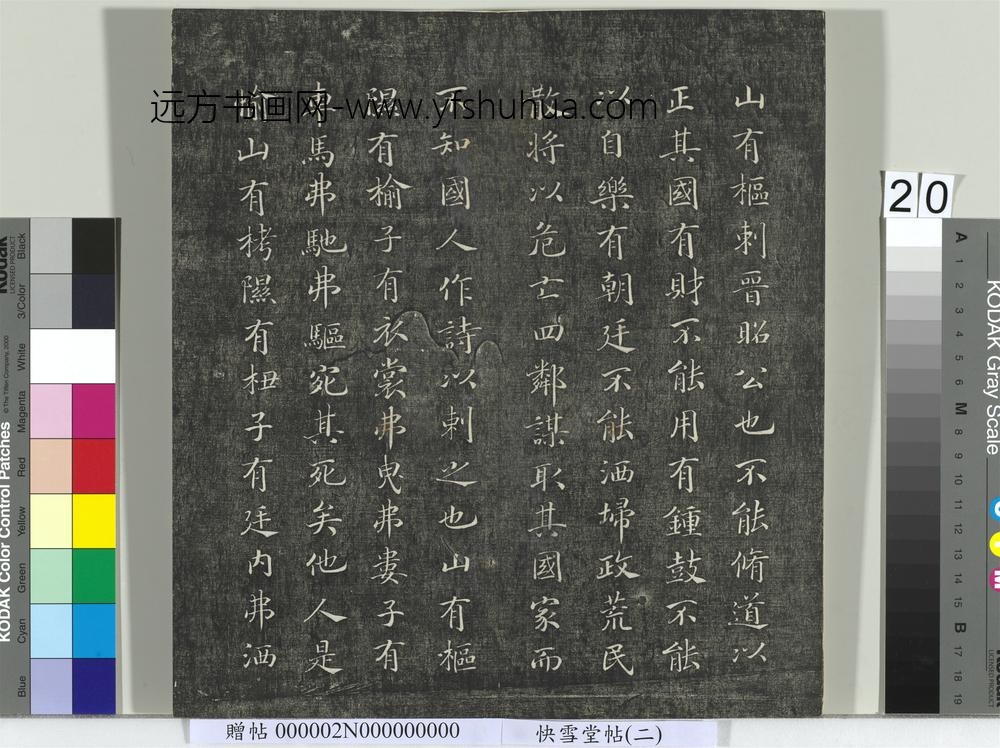 山有樞刺晉昭公也不能脩道以
正其國有財不能用有鍾鼓不能
以自樂有朝廷不能洒埽政荒民
散將以危亡四鄰謀取其國家而
不知國人作詩以刺之也山有樞
隰有榆子有衣裳弗曳弗婁子有
車馬弗馳弗驅宛其死矣他人是
愉山有栲隰有杻子有廷内弗洒
远方书画网-www.yfshuhua.com
贈帖 000002N000000000
快雪堂帖(二)
20
KODAK Color Control Patches
© The Tiffen Company, 2000
Kodak
LICENSED PRODUCT
Blue
Cyan
Green
Yellow
Red
Magenta
White
3/Color
Black
KODAK Gray Scale
A 1 2 3 4 5 6 M 8 9 10 11 12 13 14 15 B 17 18 19